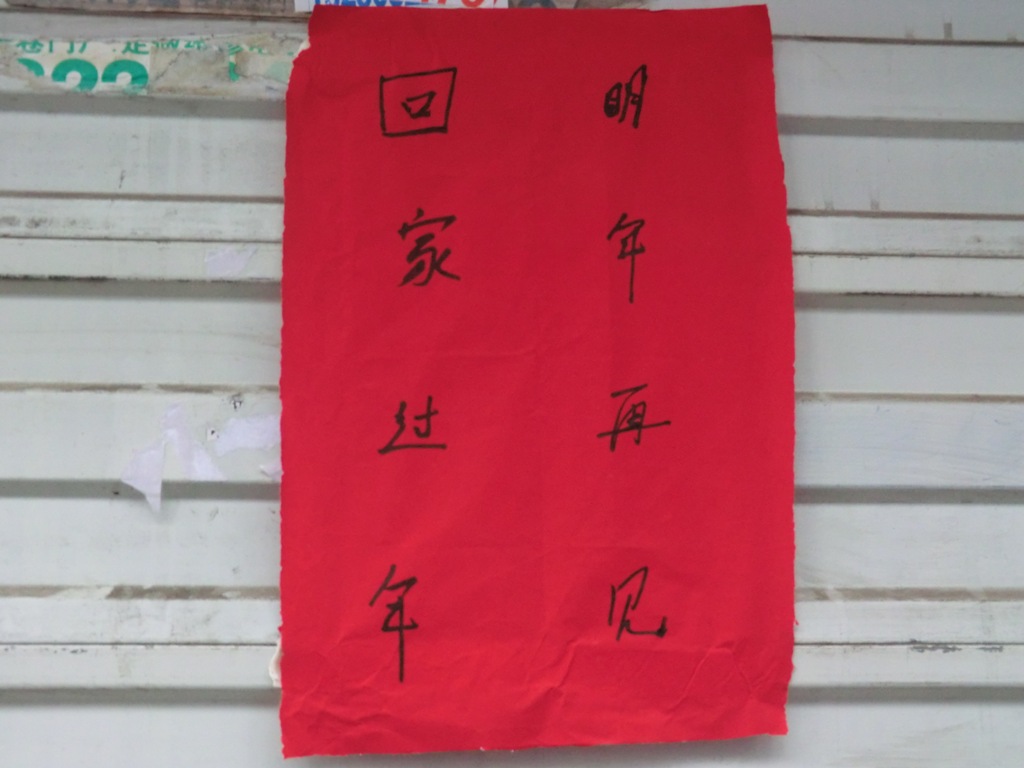 回家过年
明年再见